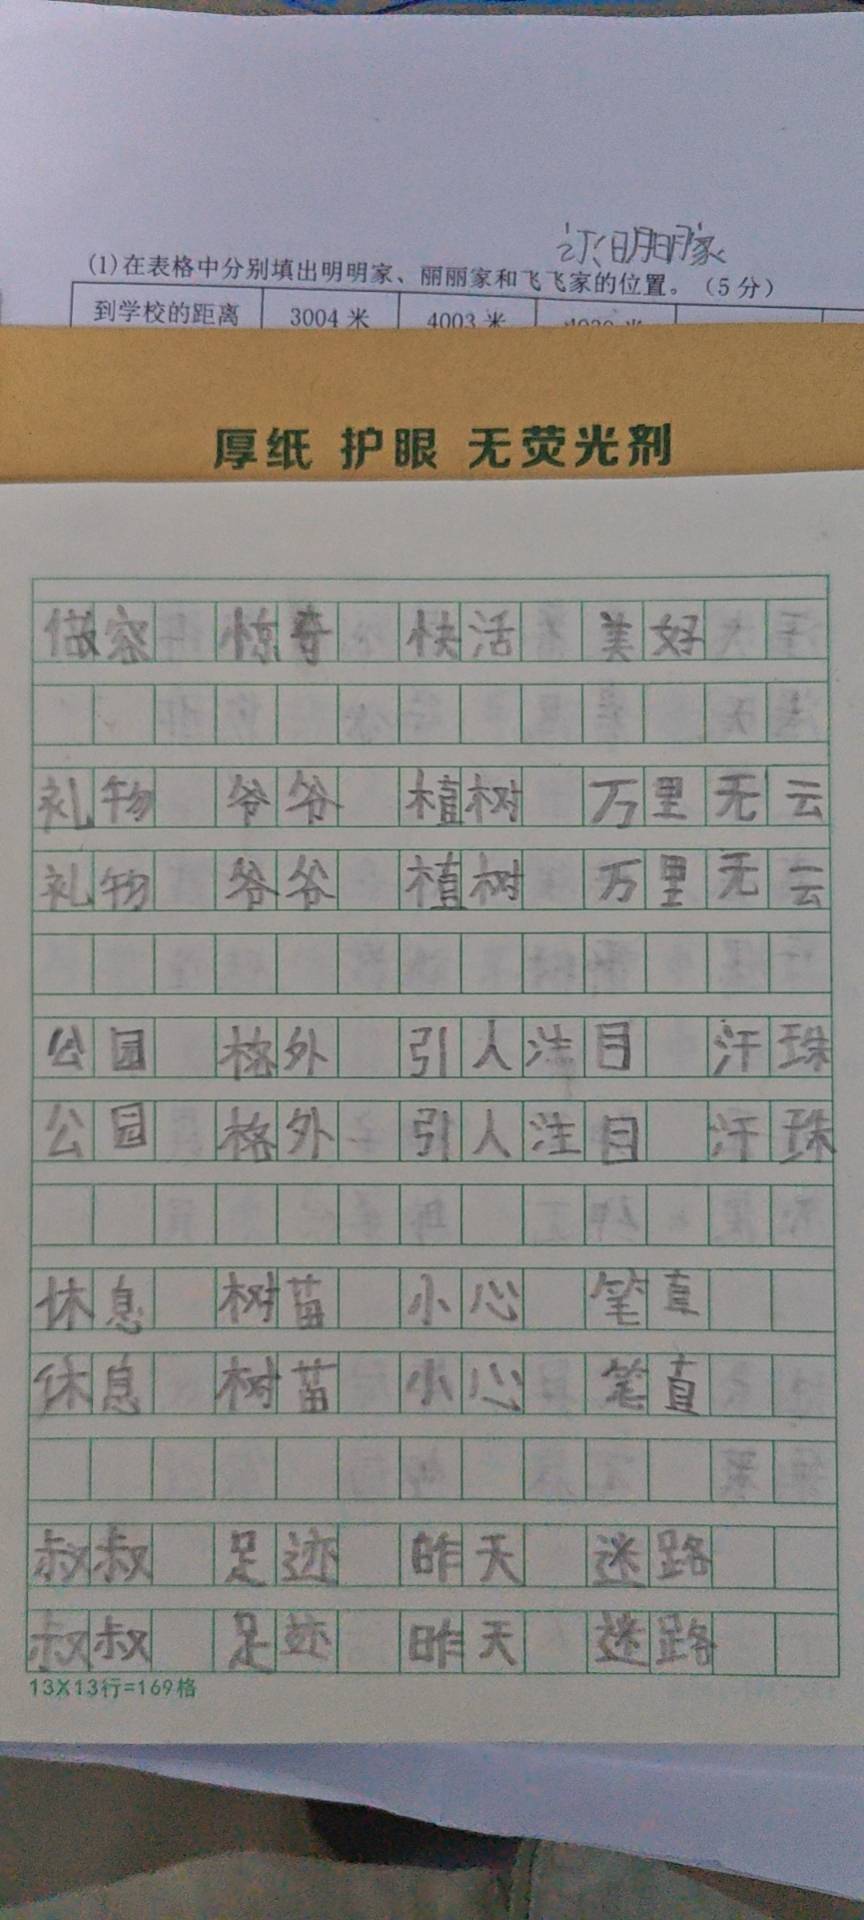 订正:明明家
(1)在表格中分别填出明明家、丽丽家和飞飞家的位置。(5分)
到学校的距离 3004米 4003米
厚纸 护眼 无荧光剂
做客 惊奇 快活 美好
礼物 爷爷 植树 万里无云
礼物 爷爷 植树 万里无云
公园 格外 引人注目 汗珠
公园 格外 引人注目 汗珠
休息 树苗 小心 笔直
休息 树苗 小心 笔直
叔叔 足迹 昨天 迷路
叔叔 足迹 昨天 迷路
13X13行=169格